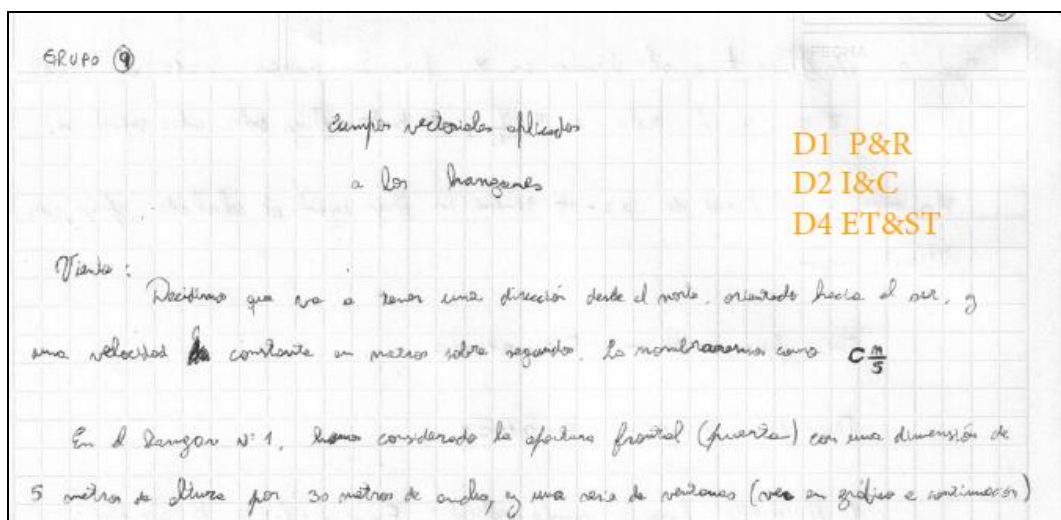 GRUPO 9
Campos vectoriales aplicados
a los hangares
D1 P&R
D2 I&C
D4 ET&ST
Viento:
Decidimos que va a tener una dirección desde el norte, orientado hacia el sur, y
una velocidad constante en metros sobre segundos. Lo nombraremos como C m/s
En el Hangar Nº 1, hemos considerado la apertura frontal (puerta) con una dimensión de
5 metros de altura por 30 metros de ancho, y una serie de ventanas (ver en gráfico a continuación)